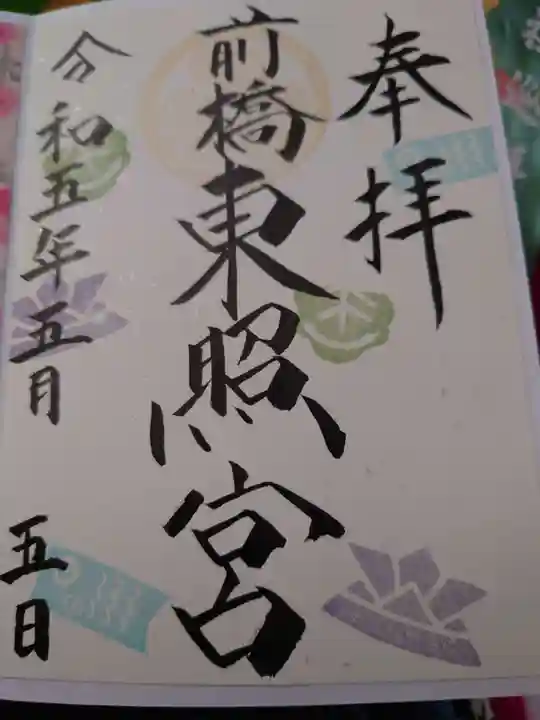 奉拝
前橋東照宮
令和五年五月
五日